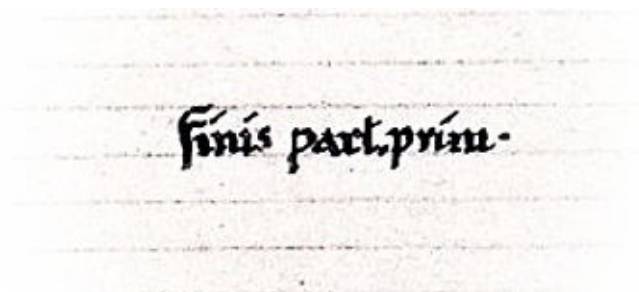 finis part. prim.